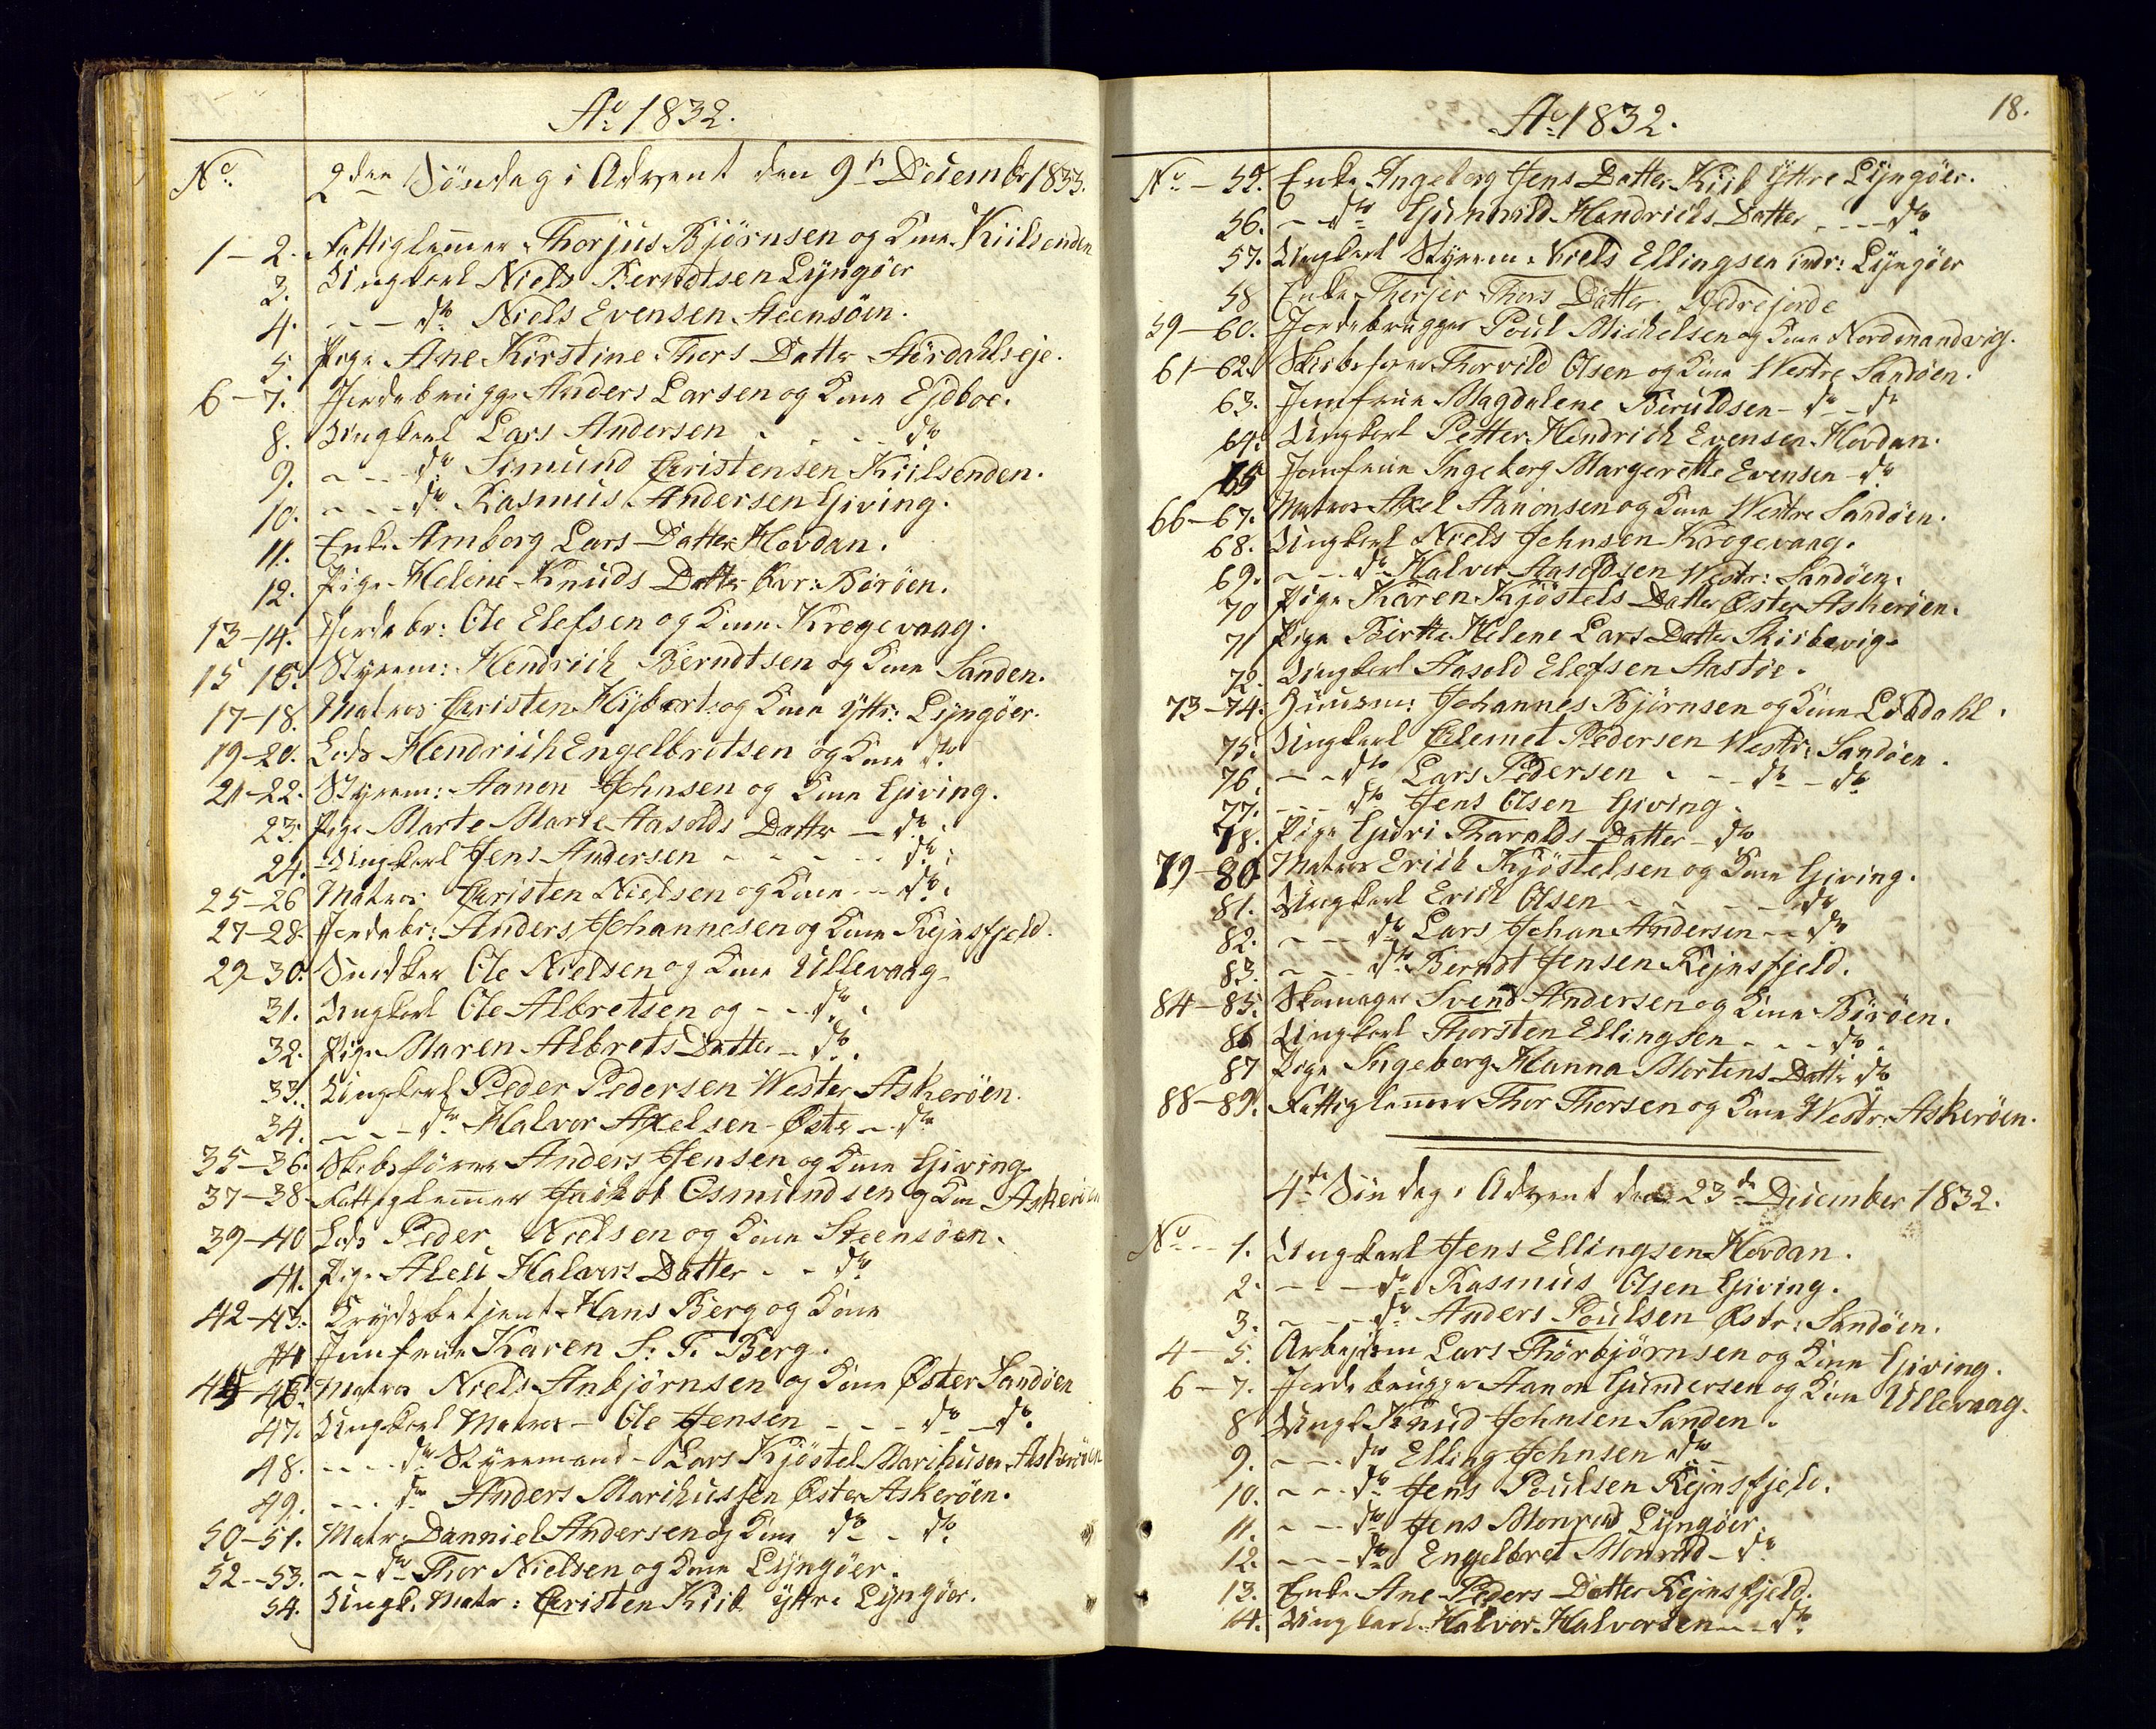 Ao 1832.
No. 2den Söndag i Advent den 9de Decembr 1833.
1-2. Fattiglemer Thorjus Bjørnsen og Kone Kiilsenden
3. Ungkarl Niels Berndtsen Lyngöer
4. - - - do Niels Evensen Steensöen.
5. Pige Ane Kirstine Thors Datter Hördahlseje.
6-7. Jordebrugger Anders Larsen og Kone Ejdboe.
8. Ungkarl Lars Andersen - - - - do
9. - - - do Simund Christensen Kiilsenden.
10. - - - do Rasmus Andersen Giving.
11. Enke Amborg Lars Datter Hovdan.
12. Pige Helene Knuds Datter Børöen.
13-14. Jordebr: Ole Elefsen og Kone Krogevaag.
15 16. Styrem: Hendrich Berndtsen og Kone Sanden.
17-18. Matros Christen Hybert og Kone Yttr: Lyngöer.
19-20. Lods Hendrich Engelbretsen og Kone do
21-22. Styrem: Aanon Johnsen og Kone Giving.
23. Pige Marte Marie Aasolds Datter - do.
24. Ungkarl Jens Andersen - - - - - do.
25-26 Matros Christen Nielsen og Kone - - do.
27-28. Jordebr: Anders Johannesen og Kone Rejnsfjeld.
29-30. Snidker Ole Nielsen og Kone Ullevaag
31. Ungkarl Ole Albretsen og - - do.
32. Pige Maren Albrets Datter - do.
33. Ungkarl Peder Pedersen Wester Askeröen.
34. - - - do Halvor Axelsen Øster - do
35-36. Skibsförer Anders Jensen og Kone Giving
37-38. Fattiglemer Jakob Osmundsen og Kone Askeröen
39-40 Lods Peder Nielsen og Kone Steensöen.
41. Pige Aleti Halvors Datter - - do
42-43. Krydsbetjent Hans Berg og Kone
44 Jomfrue Karen S: F. Berg.
45-46. Matros Niels Anbjörnsen og Kone Øster Sandöen
47. Ungkarl Matros - Ole Jensen - - - do - do.
48. - - - do Styremand - Lars Kjöstel Marikusen Askeröen
49. - - - do Anders Marikussen Øster Askeröen.
50-51. Matr: Danniel Andersen og Kone do - do.
52--53. - - do Thor Nielsen og Kone Lyngöer.
54. Ungk. Matr: Christen Kiil Yttre Lyngöer.
18.
Ao 1832.
No - 55. Enke Ingeborg Jens Datter Kiil Yttre Lyngöer.
56. - - do Gunnild Hendrichs Datter - - - - do.
57. Ungkarl Styrem: Niels Ellingsen indr: Lyngöer
58 Enke Therjer Thors Datter Nedrejorde
59-60. Jordebrugger Poul Michelsen og Kone Nordmandvig.
61-62. Skibsförer Thorvild Olsen og Kone Westre Sandöen.
63. Jomfrue Magdalene Beruldsen - do - do
64. Ungkarl Petter Hendrich Evensen Hovdan.
65 Jomfrue Ingeborg Margerethe Evensen - do
66-67. Matros Axel Aanonsen og Kone Westre Sandöen.
68. Ungkarl Niels Johnsen Krogevaag.
69. - - - do Halvor Aasoldsen Westr: Sandöen.
70 Pige Karen Kjöstels Datter Øster Askeröen.
71 Pige Birthe Helene Lars Datter Skibevig
72. Ungkarl Aasold Elefsen Aastöe.
73-74. Huusm: Johannes Bjørnsen og Kone Löbdahl.
75. Ungkarl Clemet Pedersen Westr: Sandöen.
76. - - do Lars Pedersen - - - do - do
77. - - - do Jens Olsen Giving.
78. Pige Guri Tharalds Datter - do
79-80 Matros Erich Kjöstelsen og Kone Giving.
81. Ungkarl Erich Olsen - - - - - do
82. - - - do Lars Johan Andersen - - do
83. - - - do Berndt Jensen Rejnsfjeld.
84-85. Skomager Svend Andersen og Kone Böröen.
86 Ungkarl Thorsten Ellingsen - - - do.
87 Pige Ingeborg Hanna Mortens Datter do
88-89. Fattiglemer Thor Thorsen og Kone Westr: Askeröen.
4de Söndag i Advent den 23de December 1832.
No - - 1. Ungkarl Jens Ellingsen Hovdan.
2. - - - do Rasmus Olsen Giving.
3. - - - do Anders Poulsen Østr: Sandöen.
4-5. Arbejdsm Lars Thorbjörnsen og Kone Giving.
6-7. Jordebrugger Aanon Gundersen og Kone Ullevaag.
8 Ungk. Knud Johnsen Sanden.
9. - - - do Elling Johnsen do -
10. - - - do Jens Poulsen Rejnsfjeld.
11. - - - do Jens Monrad Lyngöer.
12. - - - do Engelbret Monrad - do
13. Enke Ane Peders Datter Rejnsfjeld.
14. Ungkarl Halvor Halvorsen - - - do.